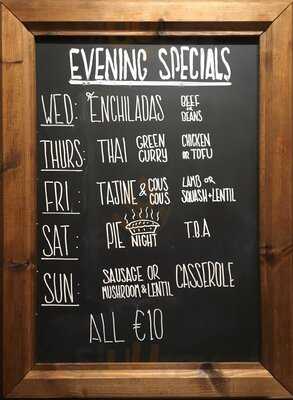 EVENING SPECIALS
WED: ENCHILADAS BEEF OR BEANS
THURS: THAI GREEN CURRY CHICKEN OR TOFU
FRI: TAJINE & COUS COUS LAMB OR SQUASH & LENTIL
SAT: PIE NIGHT T.B.A
SUN: SAUSAGE OR MUSHROOM & LENTIL CASSEROLE
ALL €10